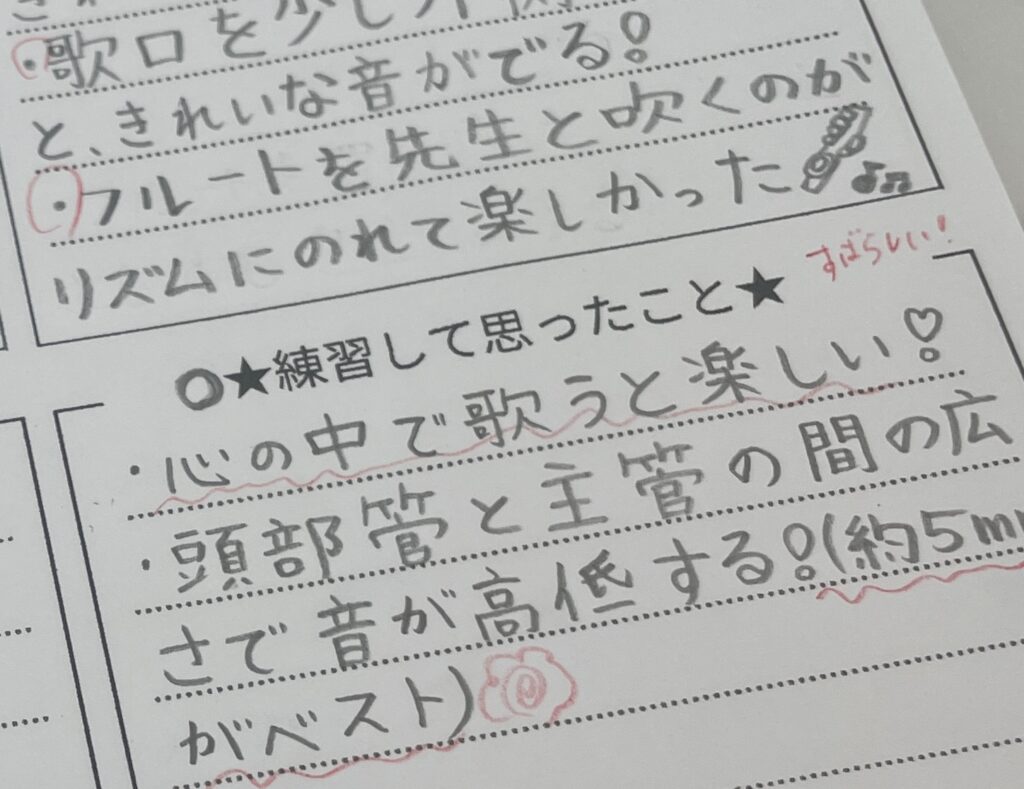 ・歌口を少し
と、きれいな音がでる!
・フルートを先生と吹くのが
リズムにのれて楽しかった
すばらしい!
○★練習して思ったこと★
・心の中で歌うと楽しい!
・頭部管と主管の間の広
さで音が高低する!(約5m
がベスト)